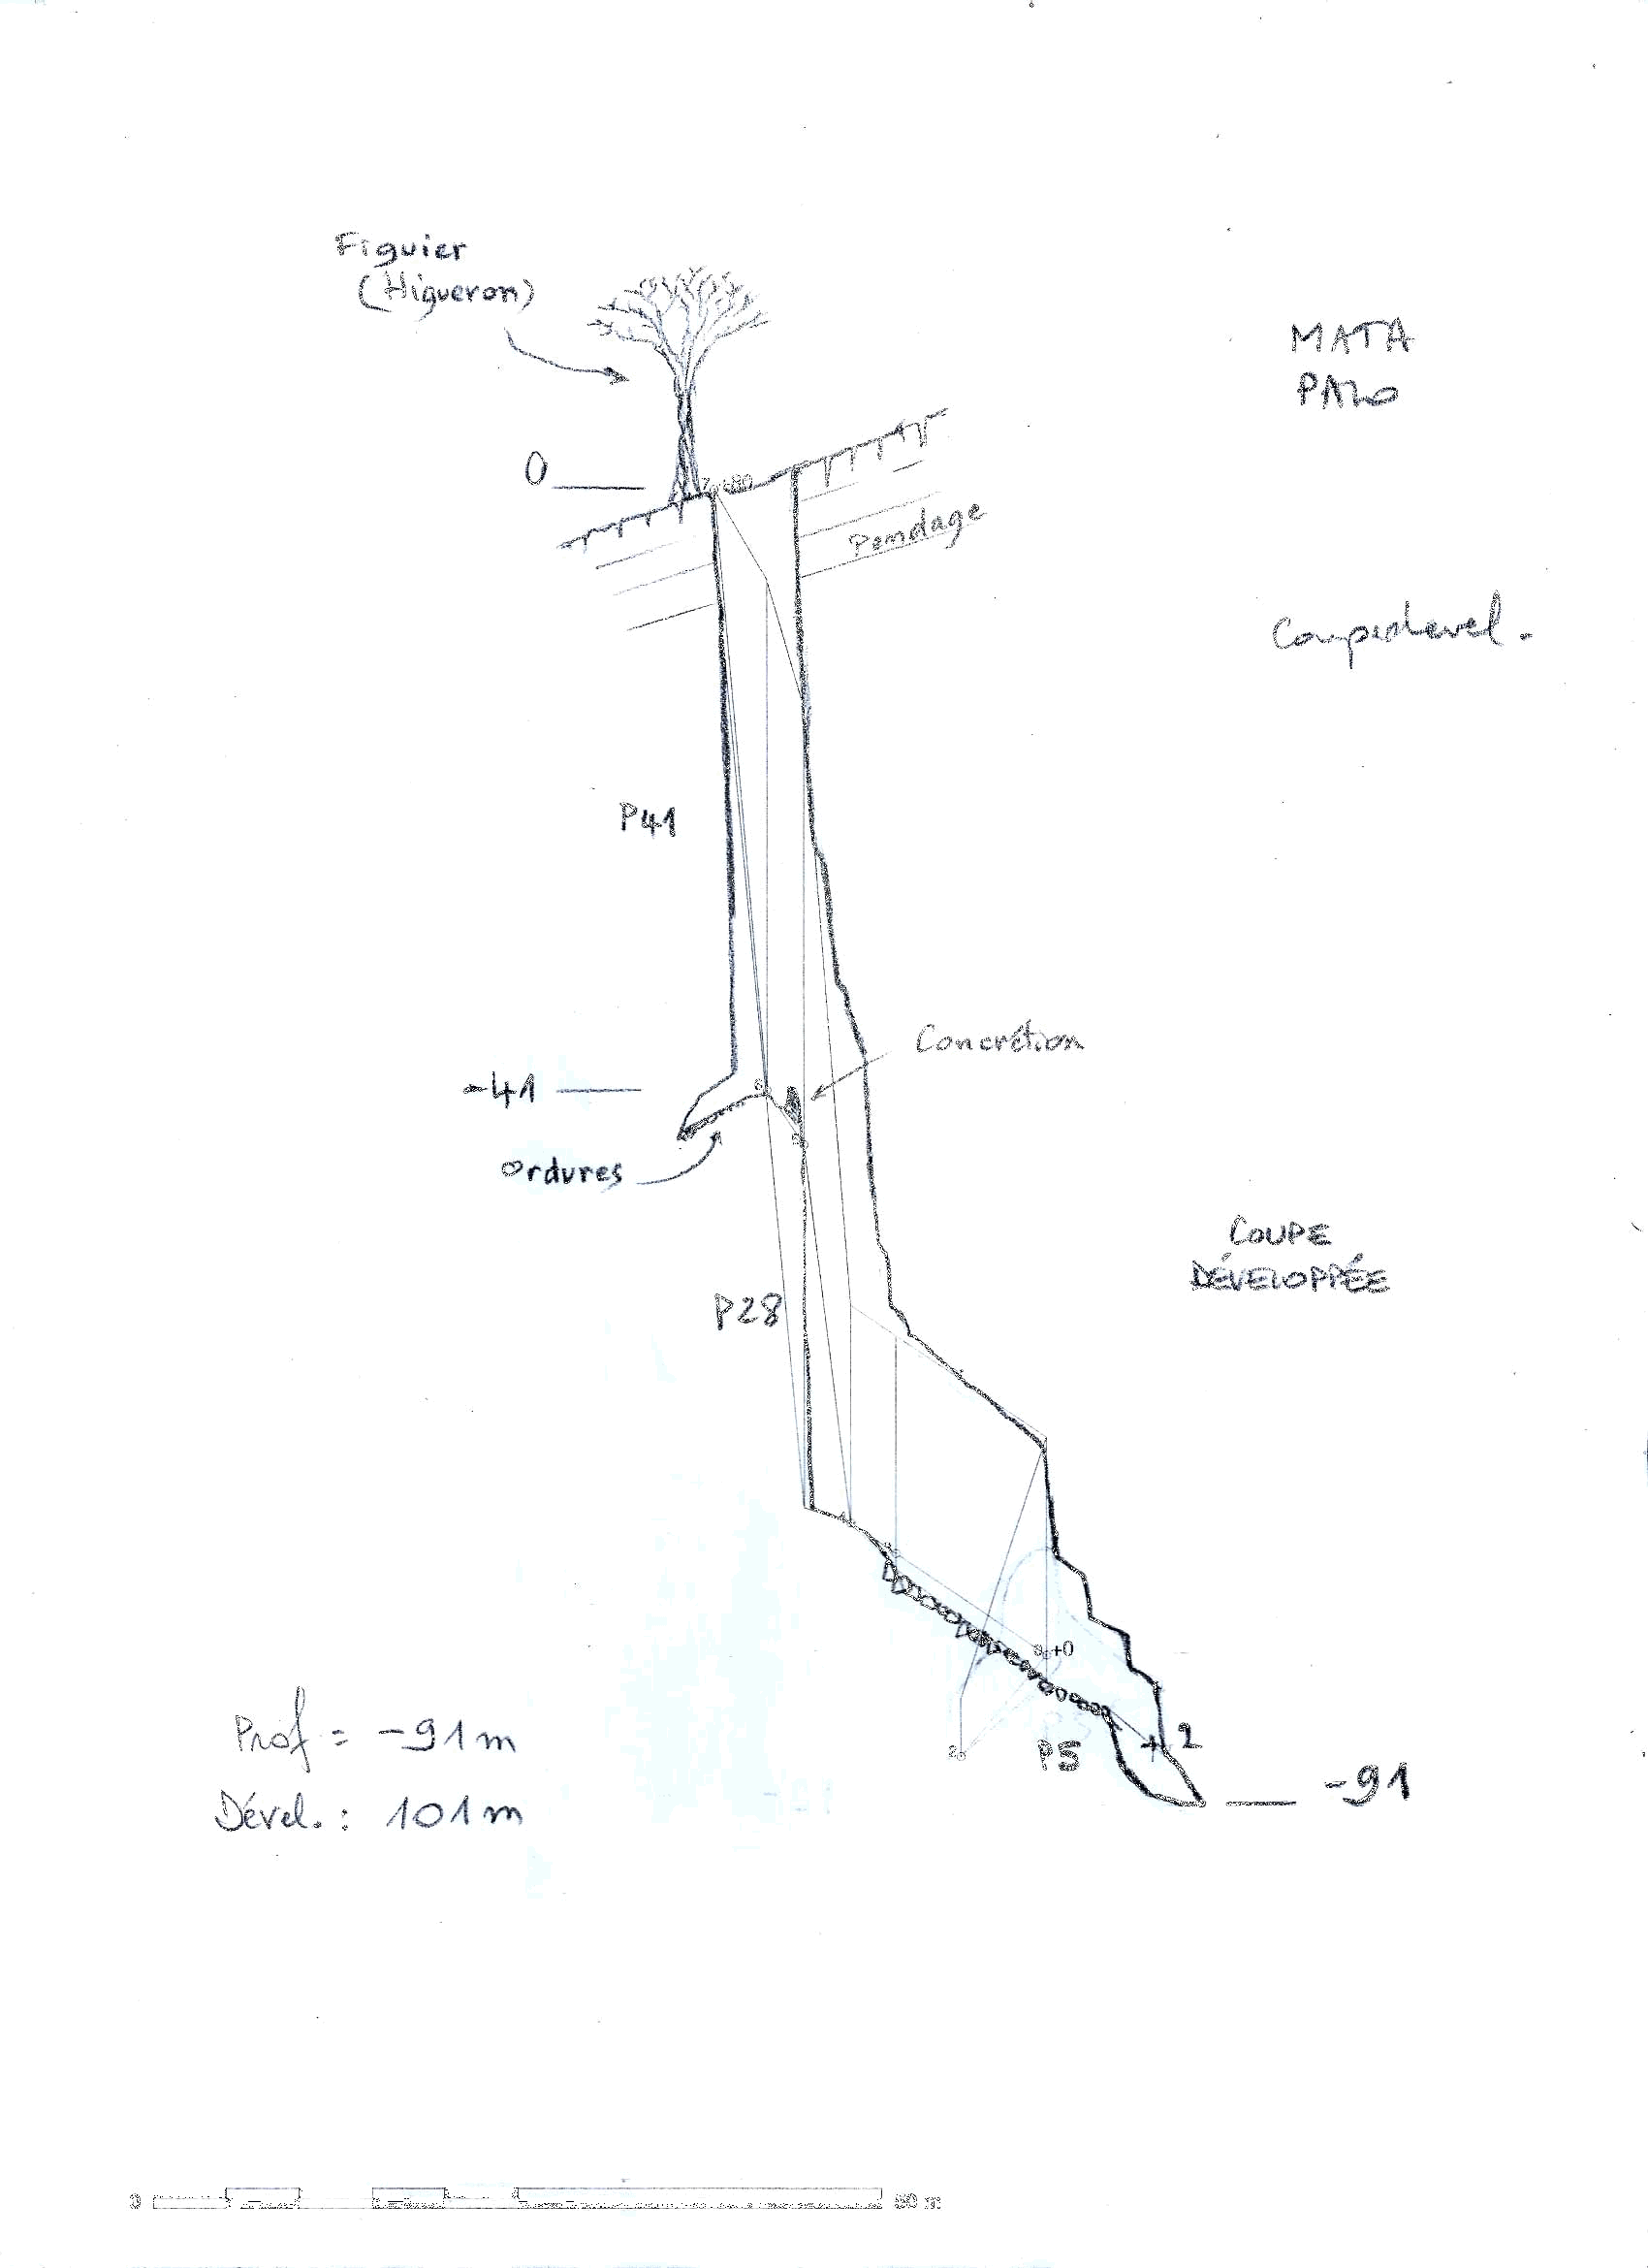 Figuier
(Higueron)
MATA
PALO
0
Pendage
Coupe devel.
P41
Concrétion
-41
Ordures
COUPE
DÉVELOPPÉE
P28
+0
Prof = -91m
P5
2
2
-91
Dével. : 101m
0
50 m